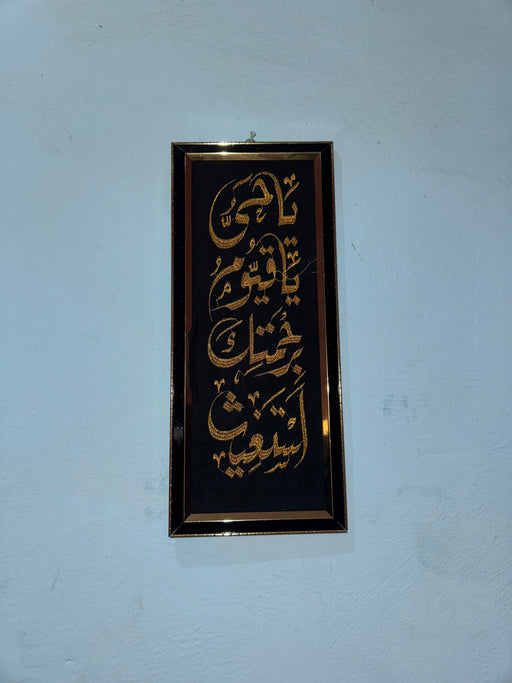 يَا حَىُّ
يَا قَيُّومُ
بِرَحْمَتِكَ
أَسْتَغِيثُ